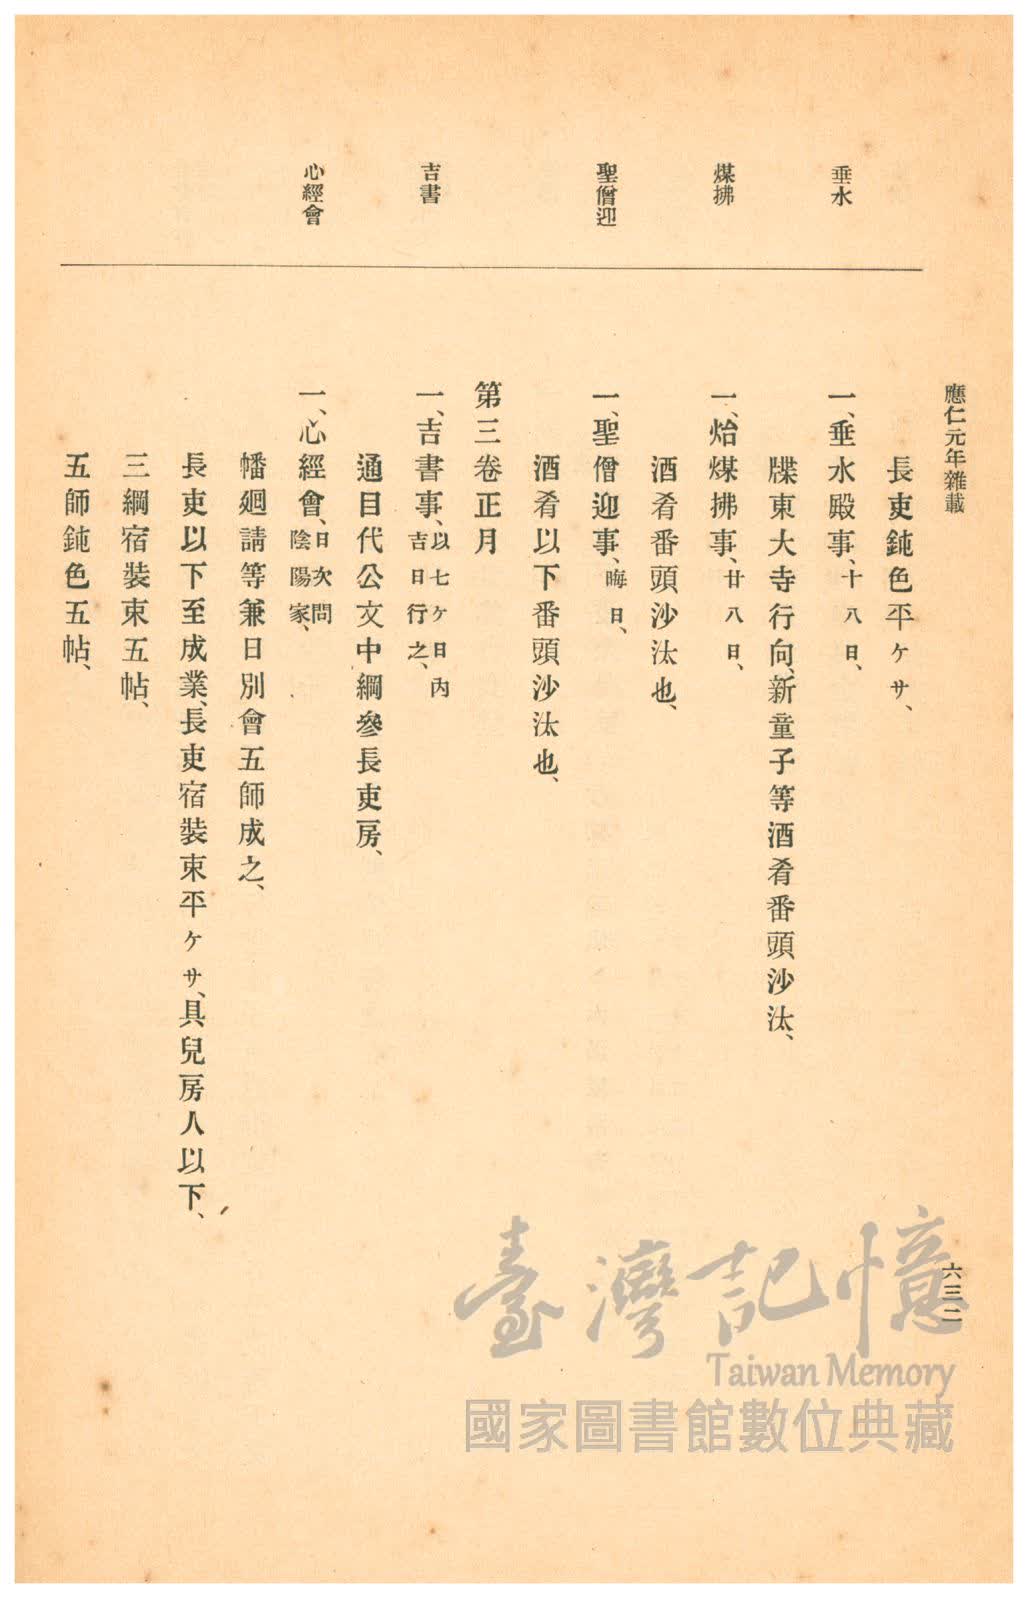 應仁元年雜載
六三二
長吏鈍色平ケサ、
垂水
一、垂水殿事、十八日、
牒東大寺行向、新童子等酒肴番頭沙汰、
煤拂
一、炲煤拂事、廿八日、
酒肴番頭沙汰也、
聖僧迎
一、聖僧迎事、晦日、
酒肴以下番頭沙汰也、
第三卷正月
吉書
一、吉書事、以七ケ日內吉日行之、
通目代公文中綱參長吏房、
心經會
一、心經會、日次問陰陽家、
幡廻請等兼日別會五師成之、
長吏以下至成業、長吏宿裝束平ケサ、具兒房人以下、
三綱宿裝束五帖、
五師鈍色五帖、
臺灣記憶
Taiwan Memory
國家圖書館數位典藏